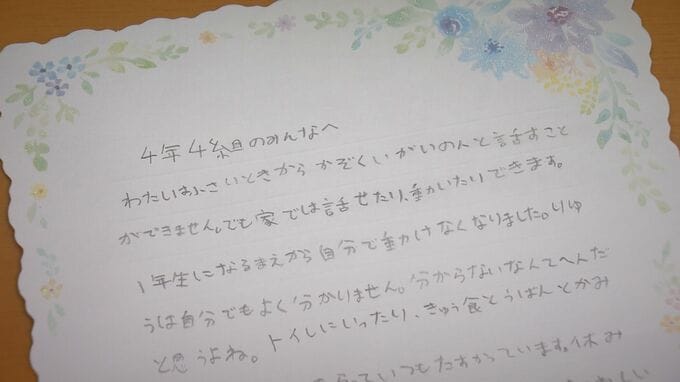 4年4組のみんなへ
わたしは小さいときからかぞくいがいの人と話すこと
ができません。でも家では話せたり、動いたりできます。
1年生になるまえから自分で動けなくなりました。りゆ
うは自分でもよく分かりません。分からないなんてへんだ
と思うよね。トイレにいったり、きゅう食とうばんとかみ
らっていつもたすかっています。休み